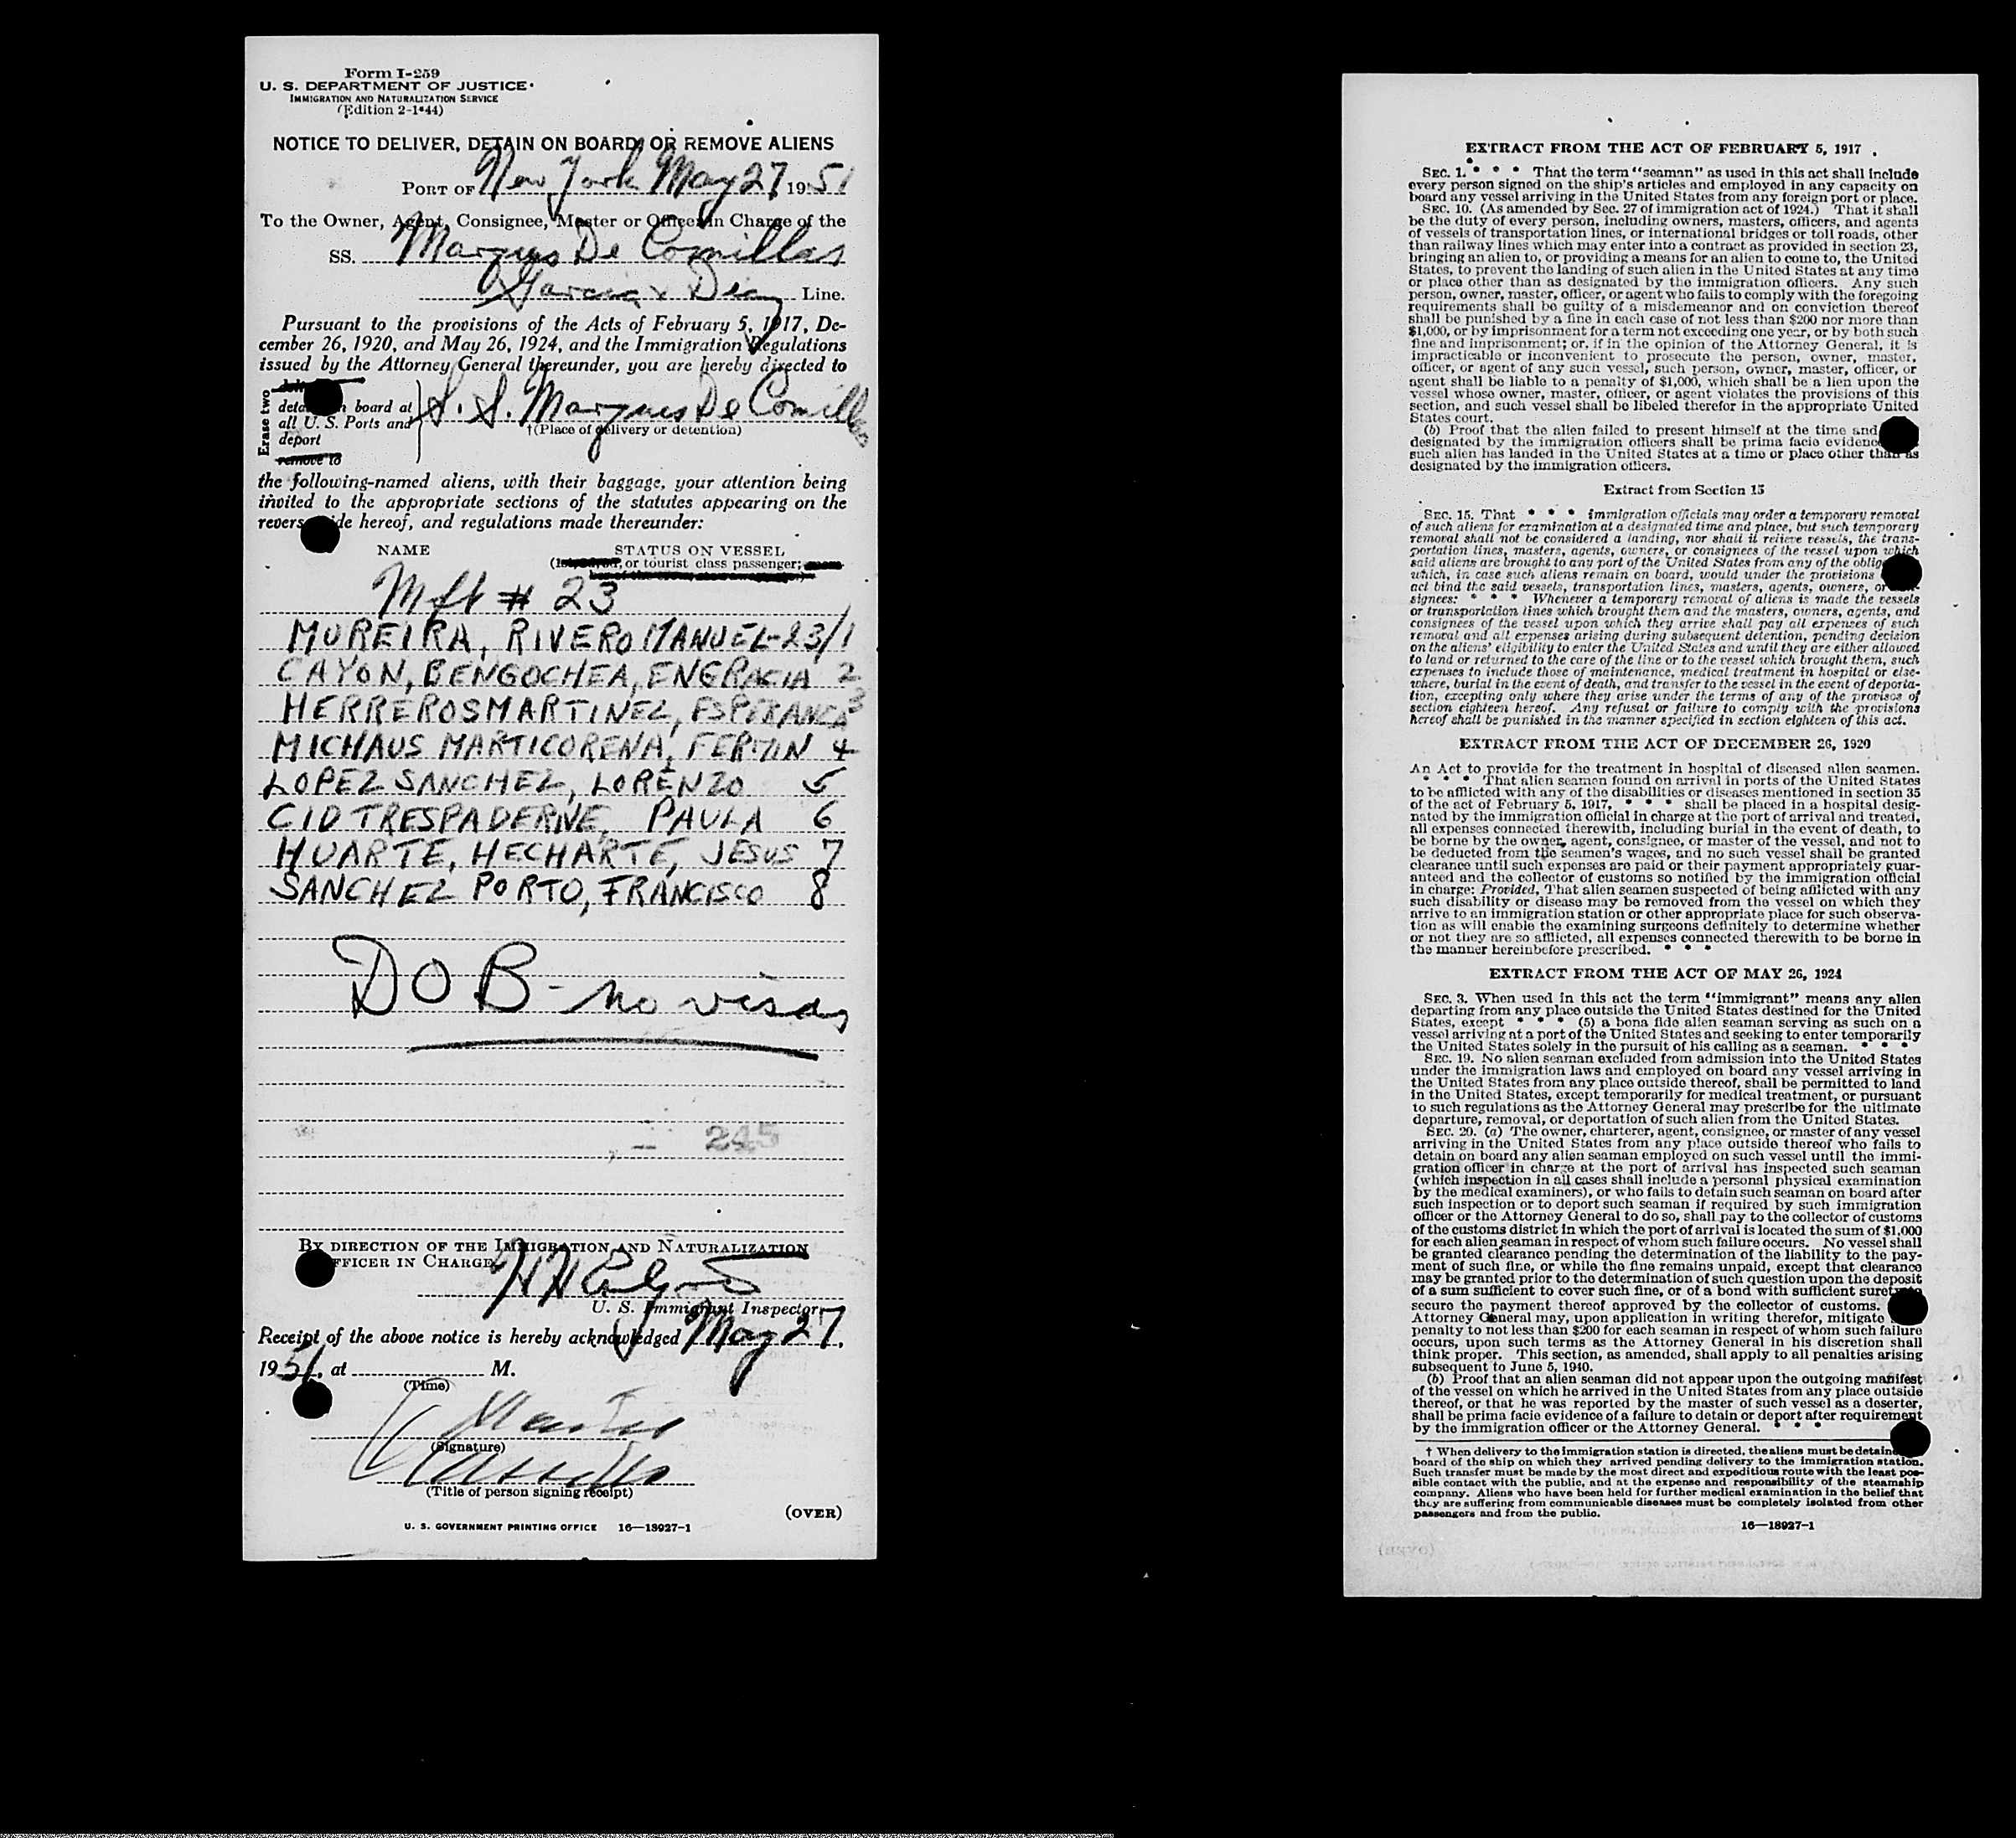 Form I-259
U. S. DEPARTMENT OF JUSTICE
IMMIGRATION AND NATURALIZATION SERVICE
(Edition 2-1-44)
NOTICE TO DELIVER, DETAIN ON BOARD, OR REMOVE ALIENS
PORT OF New York May 27 1951
To the Owner, Agent, Consignee, Master or Officer in Charge of the
SS. Marques De Comillas
Garcia & Diaz Line.
Pursuant to the provisions of the Acts of February 5, 1917, De-
cember 26, 1920, and May 26, 1924, and the Immigration Regulations
issued by the Attorney General thereunder, you are hereby directed to
Erase two
board at
all U. S. Ports and
deport
remove to
S. S. Marques De Comillas
†(Place of delivery or detention)
the following-named aliens, with their baggage, your attention being
invited to the appropriate sections of the statutes appearing on the
hereof, and regulations made thereunder:
NAME STATUS ON VESSEL
or tourist class passenger;
Mft # 23
MOREIRA, RIVERO MANUEL-23/1
CAYON, BENGOCHEA, ENGRACIA 2
HERREROSMARTINEZ, ESPERANCA 3
MICHAUS MARTICORENA, FERMIN 4
LOPEZ SANCHEZ, LORENZO 5
CID TRESPADERNE, PAULA 6
HUARTE, HECHARTE, JESUS 7
SANCHEZ PORTO, FRANCISCO 8
DOB - no visas
245
BY DIRECTION OF THE IMMIGRATION AND NATURALIZATION
OFFICER IN CHARGE
U. S. Immigrant Inspector.
Receipt of the above notice is hereby acknowledged May 27,
1951, at M.
(Time)
(Signature)
(Title of person signing receipt)
(OVER)
U. S. GOVERNMENT PRINTING OFFICE 16—18927-1
EXTRACT FROM THE ACT OF FEBRUARY 5, 1917
SEC. 1. * * * That the term "seaman" as used in this act shall include
every person signed on the ship's articles and employed in any capacity on
board any vessel arriving in the United States from any foreign port or place.
SEC. 10. (As amended by Sec. 27 of immigration act of 1924.) That it shall
be the duty of every person, including owners, masters, officers, and agents
of vessels of transportation lines, or international bridges or toll roads, other
than railway lines which may enter into a contract as provided in section 23,
bringing an alien to, or providing a means for an alien to come to, the United
States, to prevent the landing of such alien in the United States at any time
or place other than as designated by the immigration officers. Any such
person, owner, master, officer, or agent who fails to comply with the foregoing
requirements shall be guilty of a misdemeanor and on conviction thereof
shall be punished by a fine in each case of not less than $200 nor more than
$1,000, or by imprisonment for a term not exceeding one year, or by both such
fine and imprisonment; or, if in the opinion of the Attorney General, it is
impracticable or inconvenient to prosecute the person, owner, master,
officer, or agent of any such vessel, such person, owner, master, officer, or
agent shall be liable to a penalty of $1,000, which shall be a lien upon the
vessel whose owner, master, officer, or agent violates the provisions of this
section, and such vessel shall be libeled therefor in the appropriate United
States court.
(b) Proof that the alien failed to present himself at the time and
designated by the immigration officers shall be prima facie evidence
such alien has landed in the United States at a time or place other than as
designated by the immigration officers.
Extract from Section 15
SEC. 15. That * * * immigration officials may order a temporary removal
of such aliens for examination at a designated time and place, but such temporary
removal shall not be considered a landing, nor shall it relieve vessels, the trans-
portation lines, masters, agents, owners, or consignees of the vessel upon which
said aliens are brought to any port of the United States from any of the
which, in case such aliens remain on board, would under the provisions
act bind the said vessels, transportation lines, masters, agents, owners, or
signees: * * * Whenever a temporary removal of aliens is made the vessels
or transportation lines which brought them and the masters, owners, agents, and
consignees of the vessel upon which they arrive shall pay all expenses of such
removal and all expenses arising during subsequent detention, pending decision
on the aliens' eligibility to enter the United States and until they are either allowed
to land or returned to the care of the line or to the vessel which brought them, such
expenses to include those of maintenance, medical treatment in hospital or else-
where, burial in the event of death, and transfer to the vessel in the event of deporta-
tion, excepting only where they arise under the terms of any of the provisos of
section eighteen hereof. Any refusal or failure to comply with the provisions
hereof shall be punished in the manner specified in section eighteen of this act.
EXTRACT FROM THE ACT OF DECEMBER 26, 1920
An Act to provide for the treatment in hospital of diseased alien seamen.
* * * That alien seamen found on arrival in ports of the United States
to be afflicted with any of the disabilities or diseases mentioned in section 35
of the act of February 5, 1917, * * * shall be placed in a hospital desig-
nated by the immigration official in charge at the port of arrival and treated,
all expenses connected therewith, including burial in the event of death, to
be borne by the owner, agent, consignee, or master of the vessel, and not to
be deducted from the seamen's wages, and no such vessel shall be granted
clearance until such expenses are paid or their payment appropriately guar-
anteed and the collector of customs so notified by the immigration official
in charge: Provided, That alien seamen suspected of being afflicted with any
such disability or disease may be removed from the vessel on which they
arrive to an immigration station or other appropriate place for such observa-
tion as will enable the examining surgeons definitely to determine whether
or not they are so afflicted, all expenses connected therewith to be borne in
the manner hereinbefore prescribed. * * *
EXTRACT FROM THE ACT OF MAY 26, 1924
SEC. 3. When used in this act the term "immigrant" means any alien
departing from any place outside the United States destined for the United
States, except * * * (5) a bona fide alien seaman serving as such on a
vessel arriving at a port of the United States and seeking to enter temporarily
the United States solely in the pursuit of his calling as a seaman. * * *
SEC. 19. No alien seaman excluded from admission into the United States
under the immigration laws and employed on board any vessel arriving in
the United States from any place outside thereof, shall be permitted to land
in the United States, except temporarily for medical treatment, or pursuant
to such regulations as the Attorney General may prescribe for the ultimate
departure, removal, or deportation of such alien from the United States.
SEC. 20. (a) The owner, charterer, agent, consignee, or master of any vessel
arriving in the United States from any place outside thereof who fails to
detain on board any alien seaman employed on such vessel until the immi-
gration officer in charge at the port of arrival has inspected such seaman
(which inspection in all cases shall include a personal physical examination
by the medical examiners), or who fails to detain such seaman on board after
such inspection or to deport such seaman if required by such immigration
officer or the Attorney General to do so, shall pay to the collector of customs
of the customs district in which the port of arrival is located the sum of $1,000
for each alien seaman in respect of whom such failure occurs. No vessel shall
be granted clearance pending the determination of the liability to the pay-
ment of such fine, or while the fine remains unpaid, except that clearance
may be granted prior to the determination of such question upon the deposit
of a sum sufficient to cover such fine, or of a bond with sufficient surety to
secure the payment thereof approved by the collector of customs.
Attorney General may, upon application in writing therefor, mitigate
penalty to not less than $200 for each seaman in respect of whom such failure
occurs, upon such terms as the Attorney General in his discretion shall
think proper. This section, as amended, shall apply to all penalties arising
subsequent to June 5, 1940.
(b) Proof that an alien seaman did not appear upon the outgoing manifest
of the vessel on which he arrived in the United States from any place outside
thereof, or that he was reported by the master of such vessel as a deserter,
shall be prima facie evidence of a failure to detain or deport after requirement
by the immigration officer or the Attorney General. * * *
† When delivery to the immigration station is directed, the aliens must be detained
board of the ship on which they arrived pending delivery to the immigration station.
Such transfer must be made by the most direct and expeditious route with the least pos-
sible contact with the public, and at the expense and responsibility of the steamship
company. Aliens who have been held for further medical examination in the belief that
they are suffering from communicable diseases must be completely isolated from other
passengers and from the public.
16—18927-1